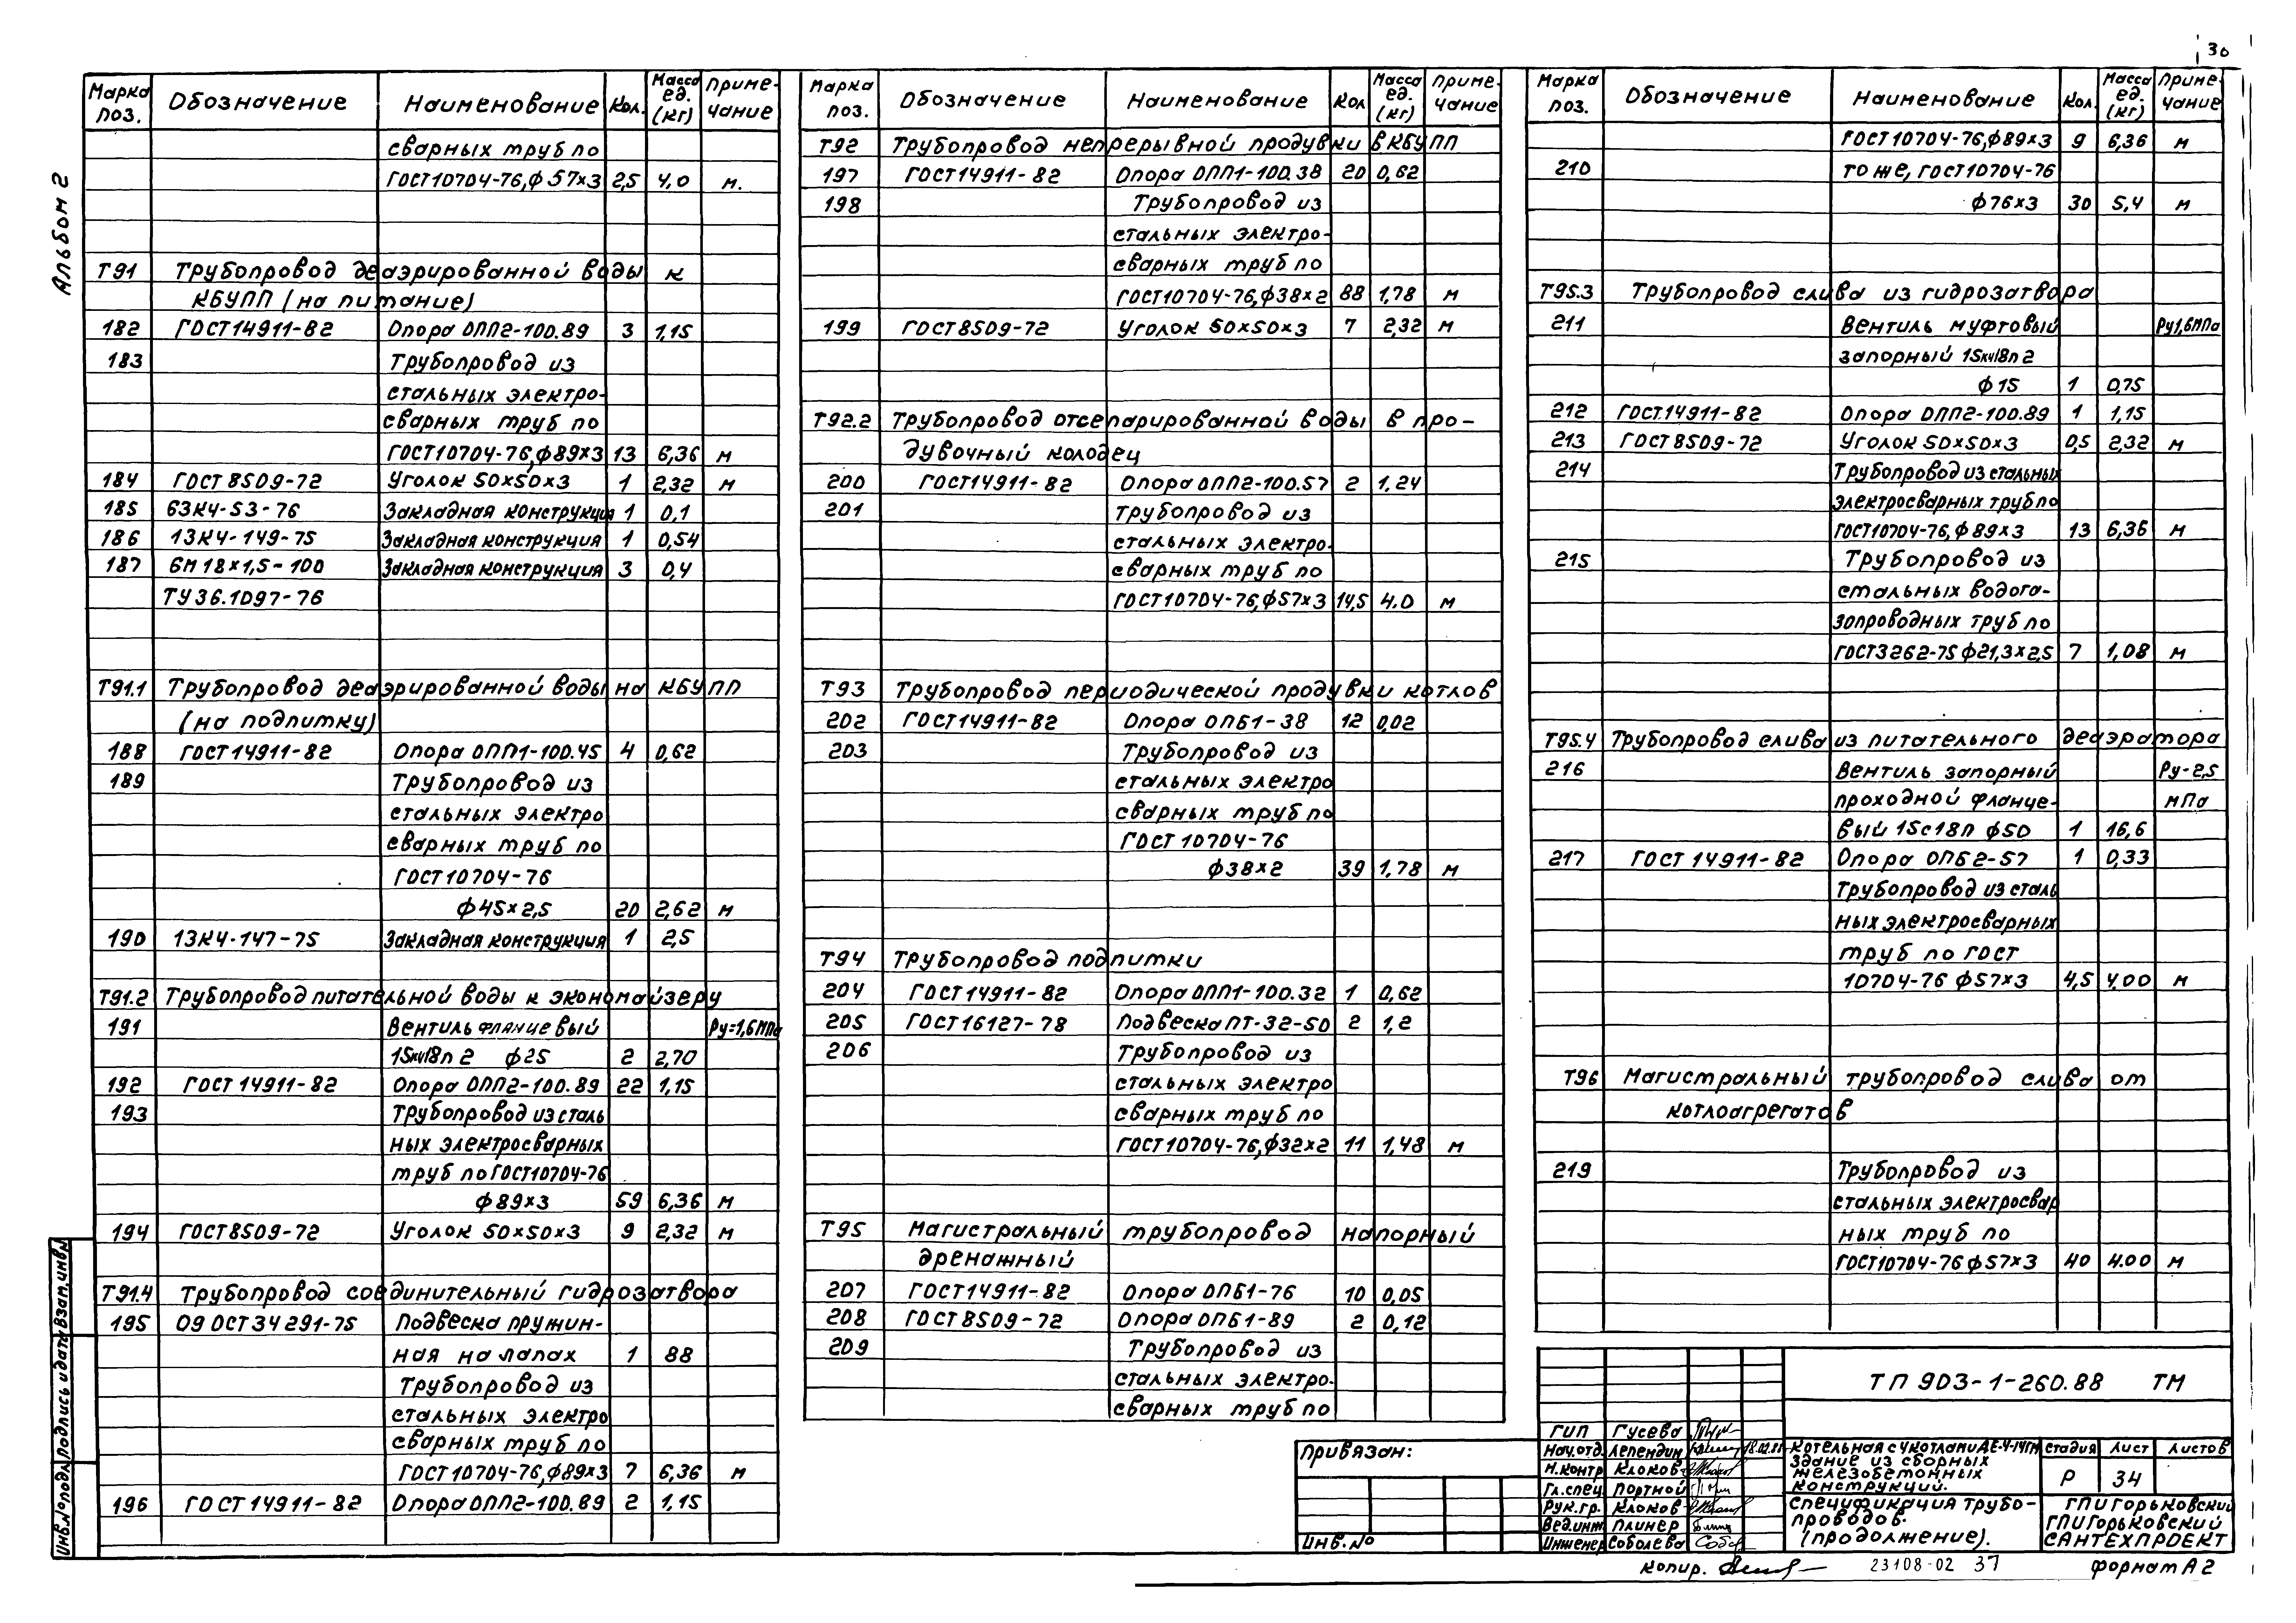 30
Альбом 2
Марка поз. Обозначение Наименование Кол. Масса ед. (кг) Примечание
сварных труб по
ГОСТ10704-76,ф57×3 2,5 4,0 м.
Т91 Трубопровод деаэрированной воды к
КБУПП (на питание)
182 ГОСТ14911-82 Опора ОПП2-100.89 3 1,15
183 Трубопровод из
стальных электро-
сварных труб по
ГОСТ10704-76,ф89×3 13 6,36 м
184 ГОСТ 8509-72 Уголок 50×50×3 1 2,32 м
185 63К4-53-76 Закладная конструкция 1 0,1
186 13К4-149-75 Закладная конструкция 1 0,54
187 6М18×1,5-100 Закладная конструкция 3 0,4
ТУ36.1097-76
Т91.1 Трубопровод деаэрированной воды на КБУПП
(на подпитку)
188 ГОСТ14911-82 Опора ОПП1-100.45 4 0,62
189 Трубопровод из
стальных электро
сварных труб по
ГОСТ10704-76
ф45×2,5 20 2,62 м
190 13К4-147-75 Закладная конструкция 1 2,5
Т91.2 Трубопровод питательной воды к экономайзеру
191 Вентиль фланцевый Ру=1,6МПа
15кч18п2 ф25 2 2,70
192 ГОСТ14911-82 Опора ОПП2-100.89 22 1,15
193 Трубопровод из сталь
ных электросварных
труб по ГОСТ10704-76
ф89×3 59 6,36 м
194 ГОСТ8509-72 Уголок 50×50×3 9 2,32 м
Т91.4 Трубопровод соединительный гидрозатвора
195 09 ОСТ34 291-75 Подвеска пружин-
ная на лапах 1 88
Трубопровод из
стальных электро
сварных труб по
ГОСТ10704-76,ф89×3 7 6,36 м
196 ГОСТ14911-82 Опора ОПП2-100.89 2 1,15
Марка поз. Обозначение Наименование Кол. Масса ед. (кг) Примечание
Т92 Трубопровод непрерывной продувки в КБУПП
197 ГОСТ14911-82 Опора ОПП1-100.38 20 0,62
198 Трубопровод из
стальных электро-
сварных труб по
ГОСТ10704-76,ф38×2 88 1,78 м
199 ГОСТ8509-72 Уголок 50×50×3 7 2,32 м
Т92.2 Трубопровод отсепарированной воды в про-
дувочный колодец
200 ГОСТ14911-82 Опора ОПП2-100.57 2 1,24
201 Трубопровод из
стальных электро-
сварных труб по
ГОСТ10704-76,ф57×3 14,5 4.0 м
Т93 Трубопровод периодической продувки котлов
202 ГОСТ14911-82 Опора ОПБ1-38 12 0,02
203 Трубопровод из
стальных электро
сварных труб по
ГОСТ 10704-76
ф38×2 39 1,78 м
Т94 Трубопровод подпитки
204 ГОСТ14911-82 Опора ОПП1-100.32 1 0,62
205 ГОСТ16127-78 Подвеска ПТ-32-50 2 1,2
206 Трубопровод из
стальных электро
сварных труб по
ГОСТ10704-76,ф32×2 11 1,48 м
Т95 Магистральный трубопровод напорный
дренажный
207 ГОСТ14911-82 Опора ОПБ1-76 10 0,05
208 ГОСТ8509-72 Опора ОПБ1-89 2 0,12
209 Трубопровод из
стальных электро-
сварных труб по
Марка поз. Обозначение Наименование Кол. Масса ед. (кг) Примечание
ГОСТ10704-76,ф89×3 9 6,36 м
210 то же, ГОСТ10704-76
ф76×3 30 5,4 м
Т95.3 Трубопровод слива из гидрозатвора
211 Вентиль муфтовый Ру1,6МПа
запорный 15кч18п2
ф15 1 0,75
212 ГОСТ.14911-82 Опора ОПП2-100.89 1 1,15
213 ГОСТ8509-72 Уголок 50×50×3 0,5 2,32 м
214 Трубопровод из стальных
электросварных труб по
ГОСТ10704-76,ф89×3 13 6,36 м
215 Трубопровод из
стальных водога-
зопроводных труб по
ГОСТ3262-75 ф21,3×2,5 7 1,08 м
Т95.4 Трубопровод слива из питательного деаэратора
216 Вентиль запорный Ру-2,5
проходной фланце- мПа
вый 15с18п ф50 1 16,6
217 ГОСТ 14911-82 Опора ОПБ2-57 1 0,33
Трубопровод из сталь
ных электросварных
труб по ГОСТ
10704-76 ф57×3 4,5 4,00 м
Т96 Магистральный трубопровод слива от
котлоагрегатов
219 Трубопровод из
стальных электросвар
ных труб по
ГОСТ10704-76 ф57×3 40 4.00 м
ТП 903-1-260.88 ТМ
ГИП Гусева
Нач.отд. Лепендин
Н.контр Клоков
Гл.спец Портной
Рук.гр. Клоков
Вед.инж. Плинер
Инженер Соболева
Котельная с 4 котлами ДЕ-4-14ГМ
Здание из сборных
железобетонных
конструкций.
Стадия Лист Листов
Р 34
Спецификация трубо-
проводов.
(продолжение).
ГПИ Горьковский
ГПИ Горьковский
САНТЕХПРОЕКТ
Привязан:
Инв.№
Инв.№ подл. Подпись и дата Взам.инв.№
Копир.
23108-02 37
формат А2